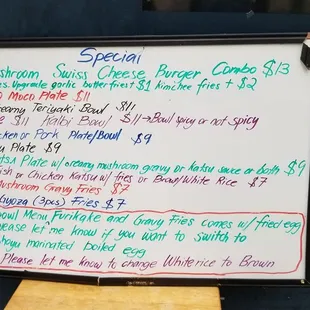 Special
shroom Swiss Cheese Burger Combo $13
es. Upgrade garlic butter fries + $1 kimchee fries + $2
Moco Plate $11
reamy Teriyaki Bowl $11
$11 Kalbi Bowl $11 → Bowl spicy or not spicy
cken or Pork Plate/Bowl $9
y Plate $9
tsu Plate w/ creamy mushroom gravy or Katsu sauce or both $9
ish or Chicken Katsu w/ fries or Brown/White Rice $7
Mushroom Gravy Fries $7
Gyoza (3pcs) Fries $7
Bowl Menu Furikake and Gravy Fries comes w/ fried egg
lease let me know if you want to switch to
hoyu marinated boiled egg
Please let me know to change White rice to Brown